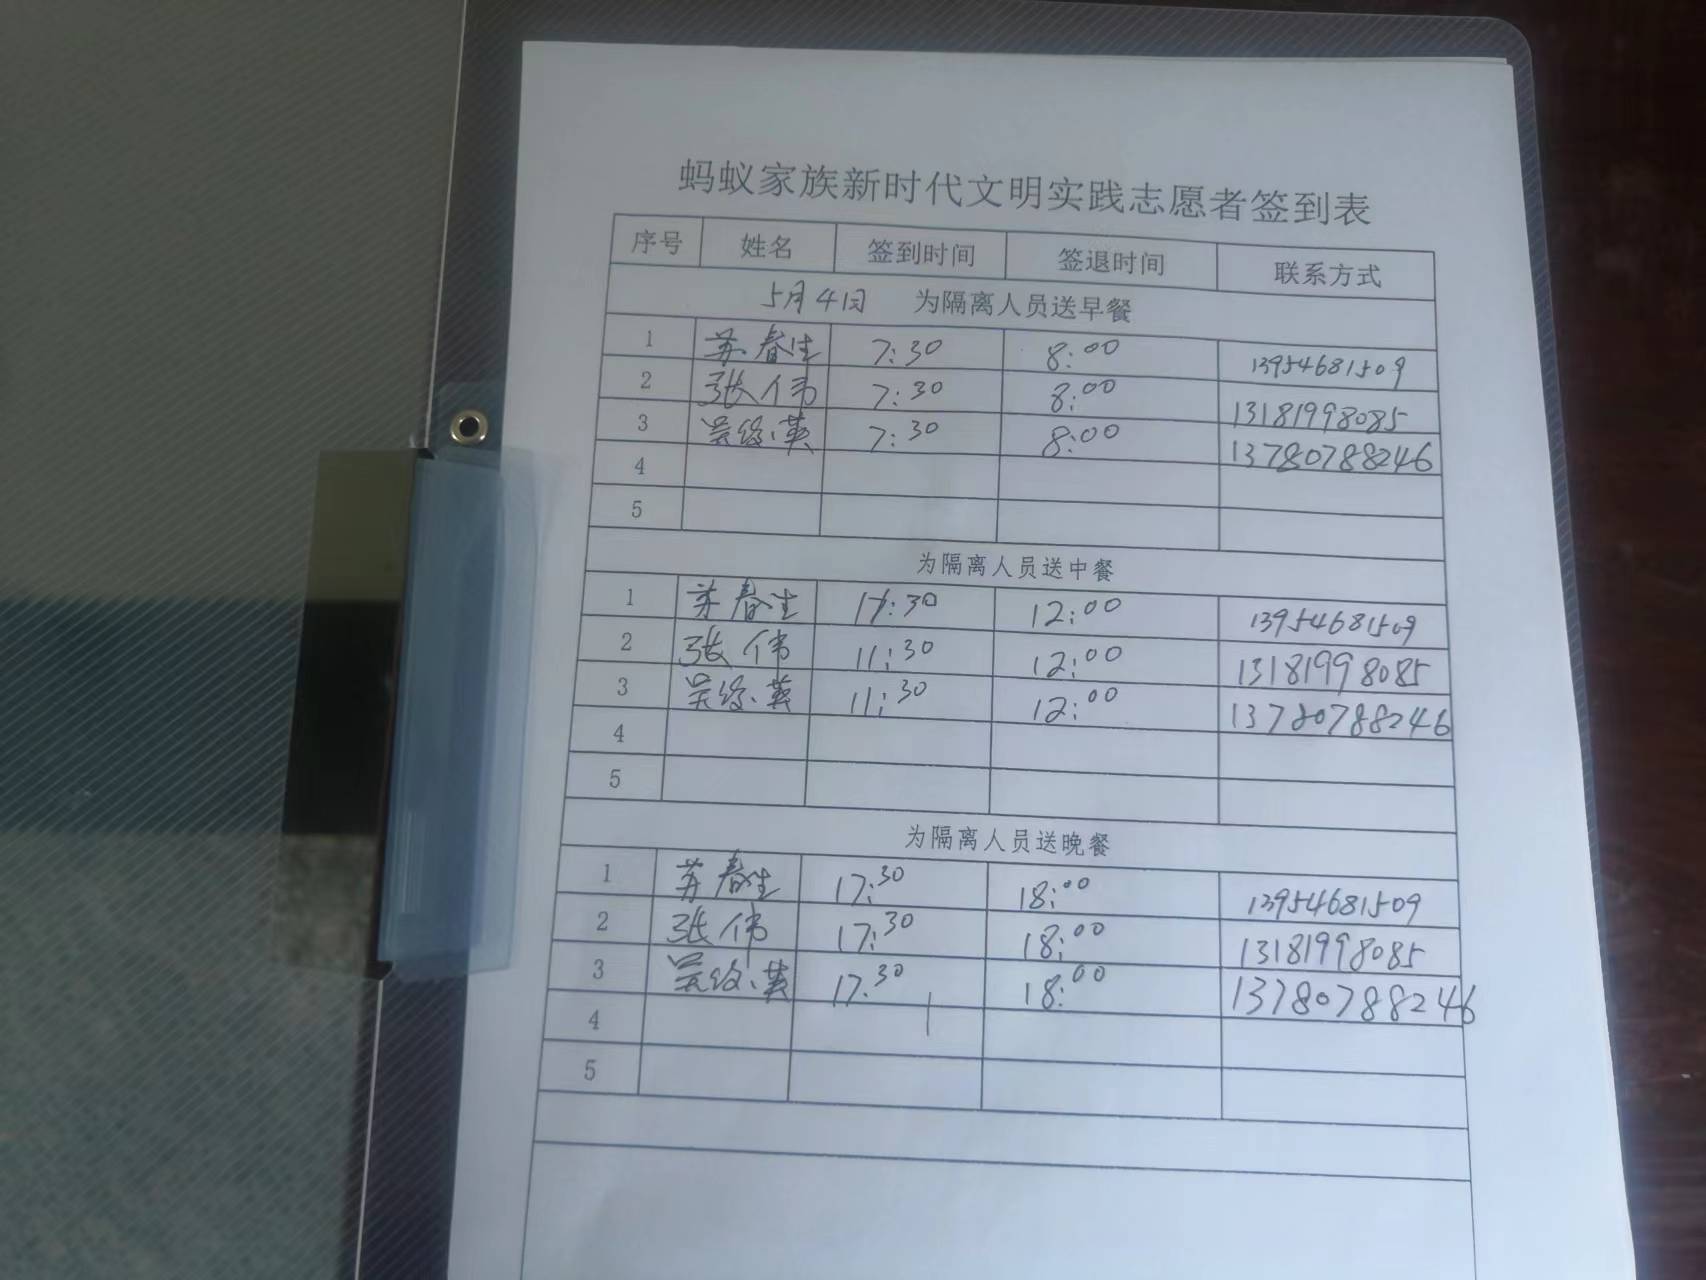 蚂蚁家族新时代文明实践志愿者签到表
序号 姓名 签到时间 签退时间 联系方式
5月4日 为隔离人员送早餐
1 苏春生 7:30 8:00 13954681509
2 张伟 7:30 8:00 13181998085
3 吴 英 7:30 8:00 13780788246
4
5
为隔离人员送中餐
1 苏春生 11:30 12:00 13954681509
2 张伟 11:30 12:00 13181998085
3 吴 英 11:30 12:00 13780788246
4
5
为隔离人员送晚餐
1 苏春生 17:30 18:00 13954681509
2 张伟 17:30 18:00 13181998085
3 吴 英 17:30 18:00 13780788246
4
5